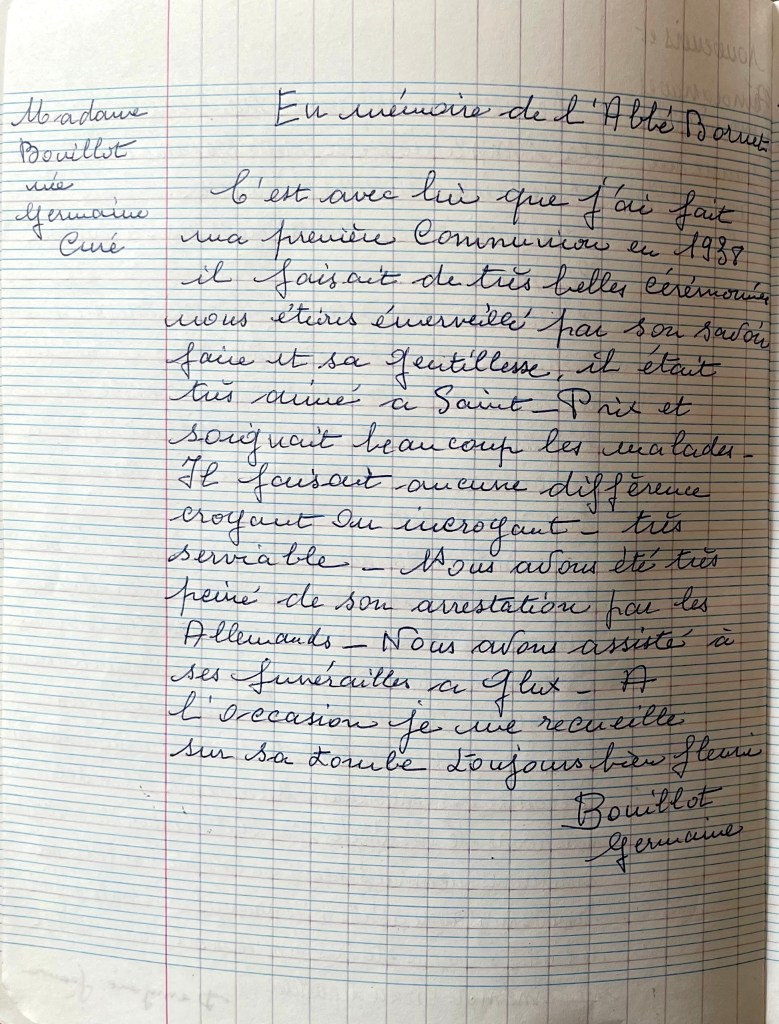 Madame
Bouillot
née
Germaine
Curé
En mémoire de l'Abbé Bornet
C'est avec lui que j'ai fait
ma première Communion en 1938
il faisait de très belles cérémonies
nous étions émerveillé par son savoir
faire et sa gentillesse, il était
très aimé a Saint-Prix et
soignait beaucoup les malades -
Il faisait aucune différence
croyant ou incroyant - très
serviable - Nous avons été très
peiné de son arrestation par les
Allemands - Nous avons assisté à
ses funérailles a Glux - A
l'occasion je me recueille
sur sa tombe toujours bien fleuri
Bouillot
Germaine